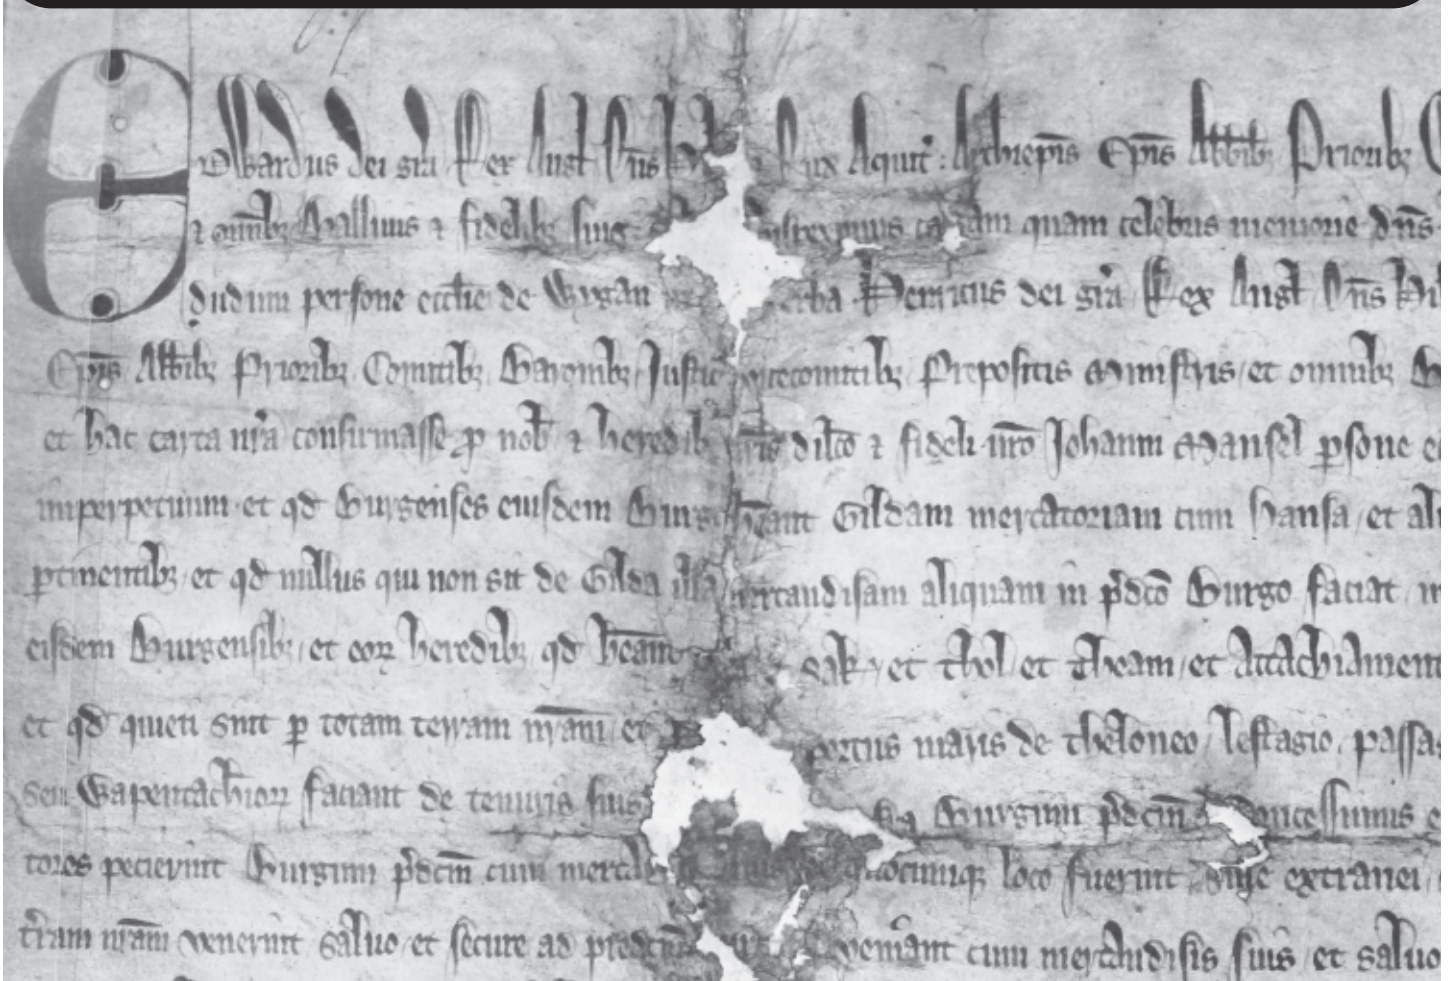 Edwardus dei gra Rex Angl Dns Dux Aquit : Archiepis Epis Abbib; Priorib;
⁊ omib; Ballivis ⁊ fidelib; suis cartam quam celebris memorie dns
dudum persone ecctie de Wygan verba Henricus dei gra Rex Angl Dns Hib
Epis Abbib; Priorib; Comitib; Baronib; Justic vicecomitib; Prepositis Ministris et omnib; B
et hac carta nra confirmasse p nob ⁊ heredib nris dilco ⁊ fideli nro Johanni Mansel psone
imperpetuum et qd Burgenses eiusdem Burgi heant Gildam mercatoriam cum hansa et ali
ptinentib; et qd nullus qui non sit de Gilda illa mercandisam aliquam in pdco Burgo faciat
eisdem Burgensib; et eoꝝ heredib; qd heant sak et thol et theam et Attachiament
et qd quieti sint p totam terram nram et portus maris de theloneo lestagio passa
seu Wapentachioꝝ faciant de tenuris suis Burgum pdcm concessimus
tores pecierint Burgum pdcm cum mercandisis quocunq; loco fuerint sive extranei
tram nram venerint salvo et secure ad predcm veniant cum mercandisis suis et salvo